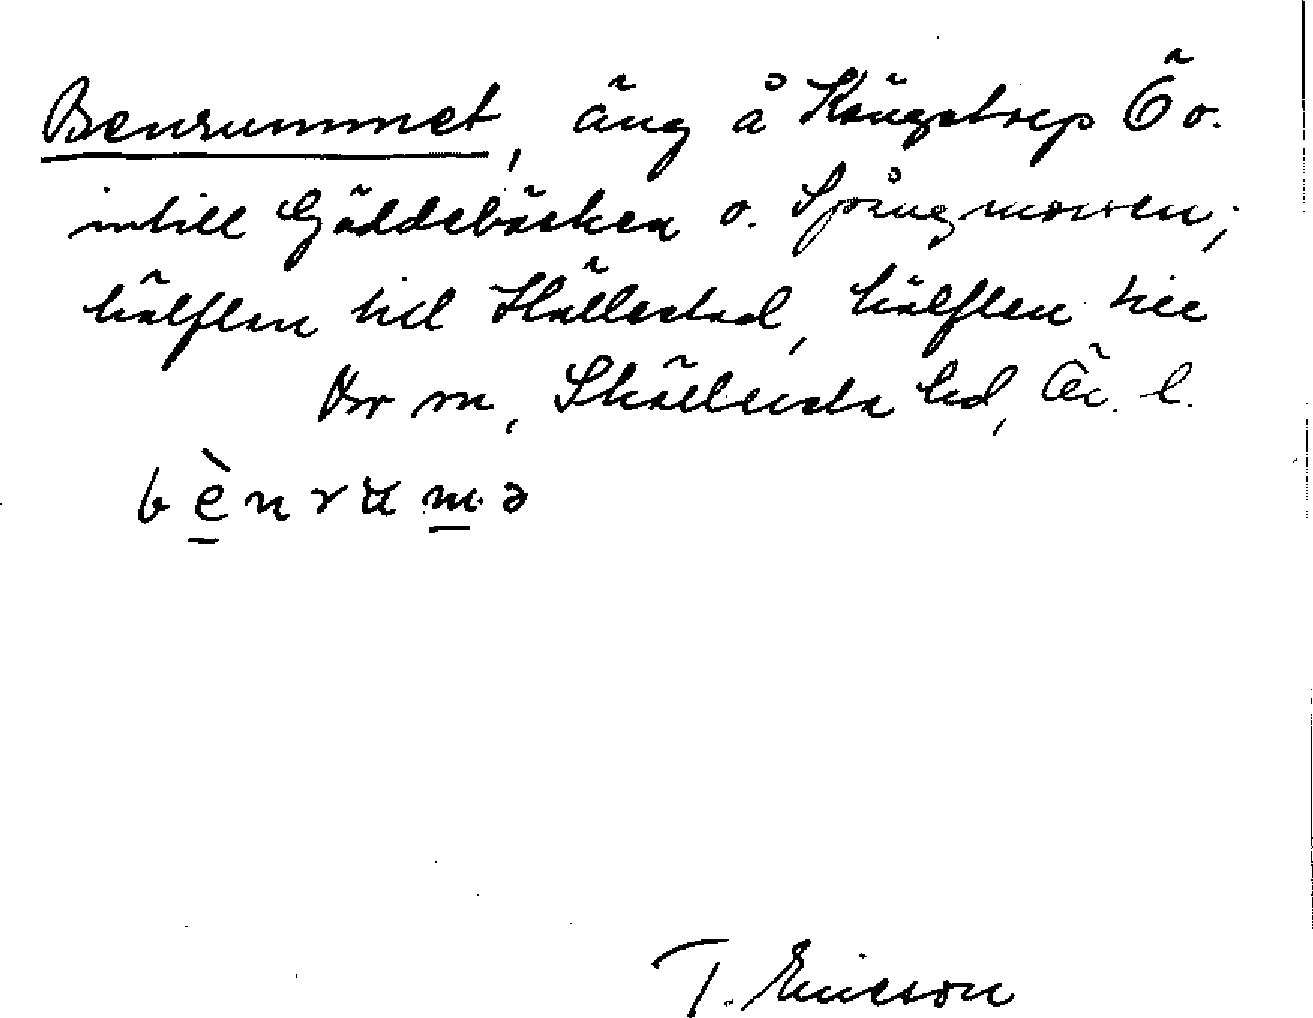 Bensrummet, äng å Kängstrep Ö o.
intill Gäddebäcken o. Spångmossen;
hälften till Hällestad, hälften till
Vor m, Skällvida hd, Äv. l.
bènrumə
T. Ericson